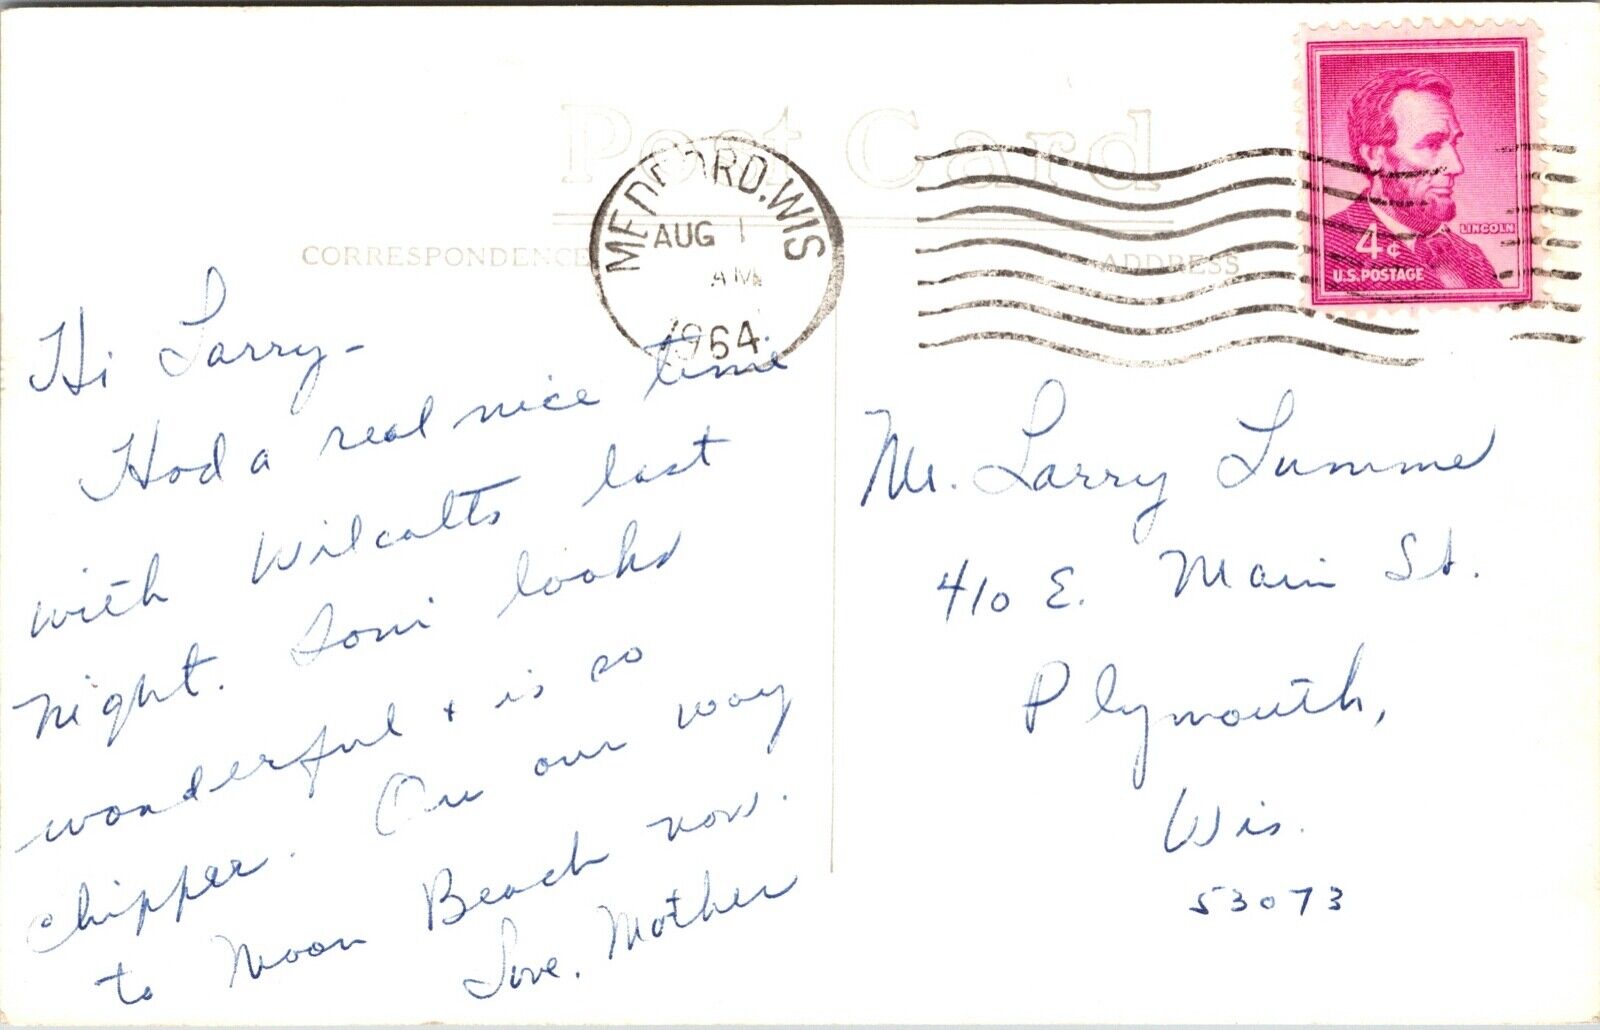 Post Card
CORRESPONDENCE
ADDRESS
MEDFORD, WIS
AUG 1
AM
1964
LINCOLN
4¢
U.S. POSTAGE
Hi Larry-
Had a real nice time
with Wilcotts last
night. Toni looks
wonderful + is so
chipper. On our way
to Moon Beach now.
Love, Mother
Mr. Larry
410 E. Main St.
Plymouth,
Wis.
53073